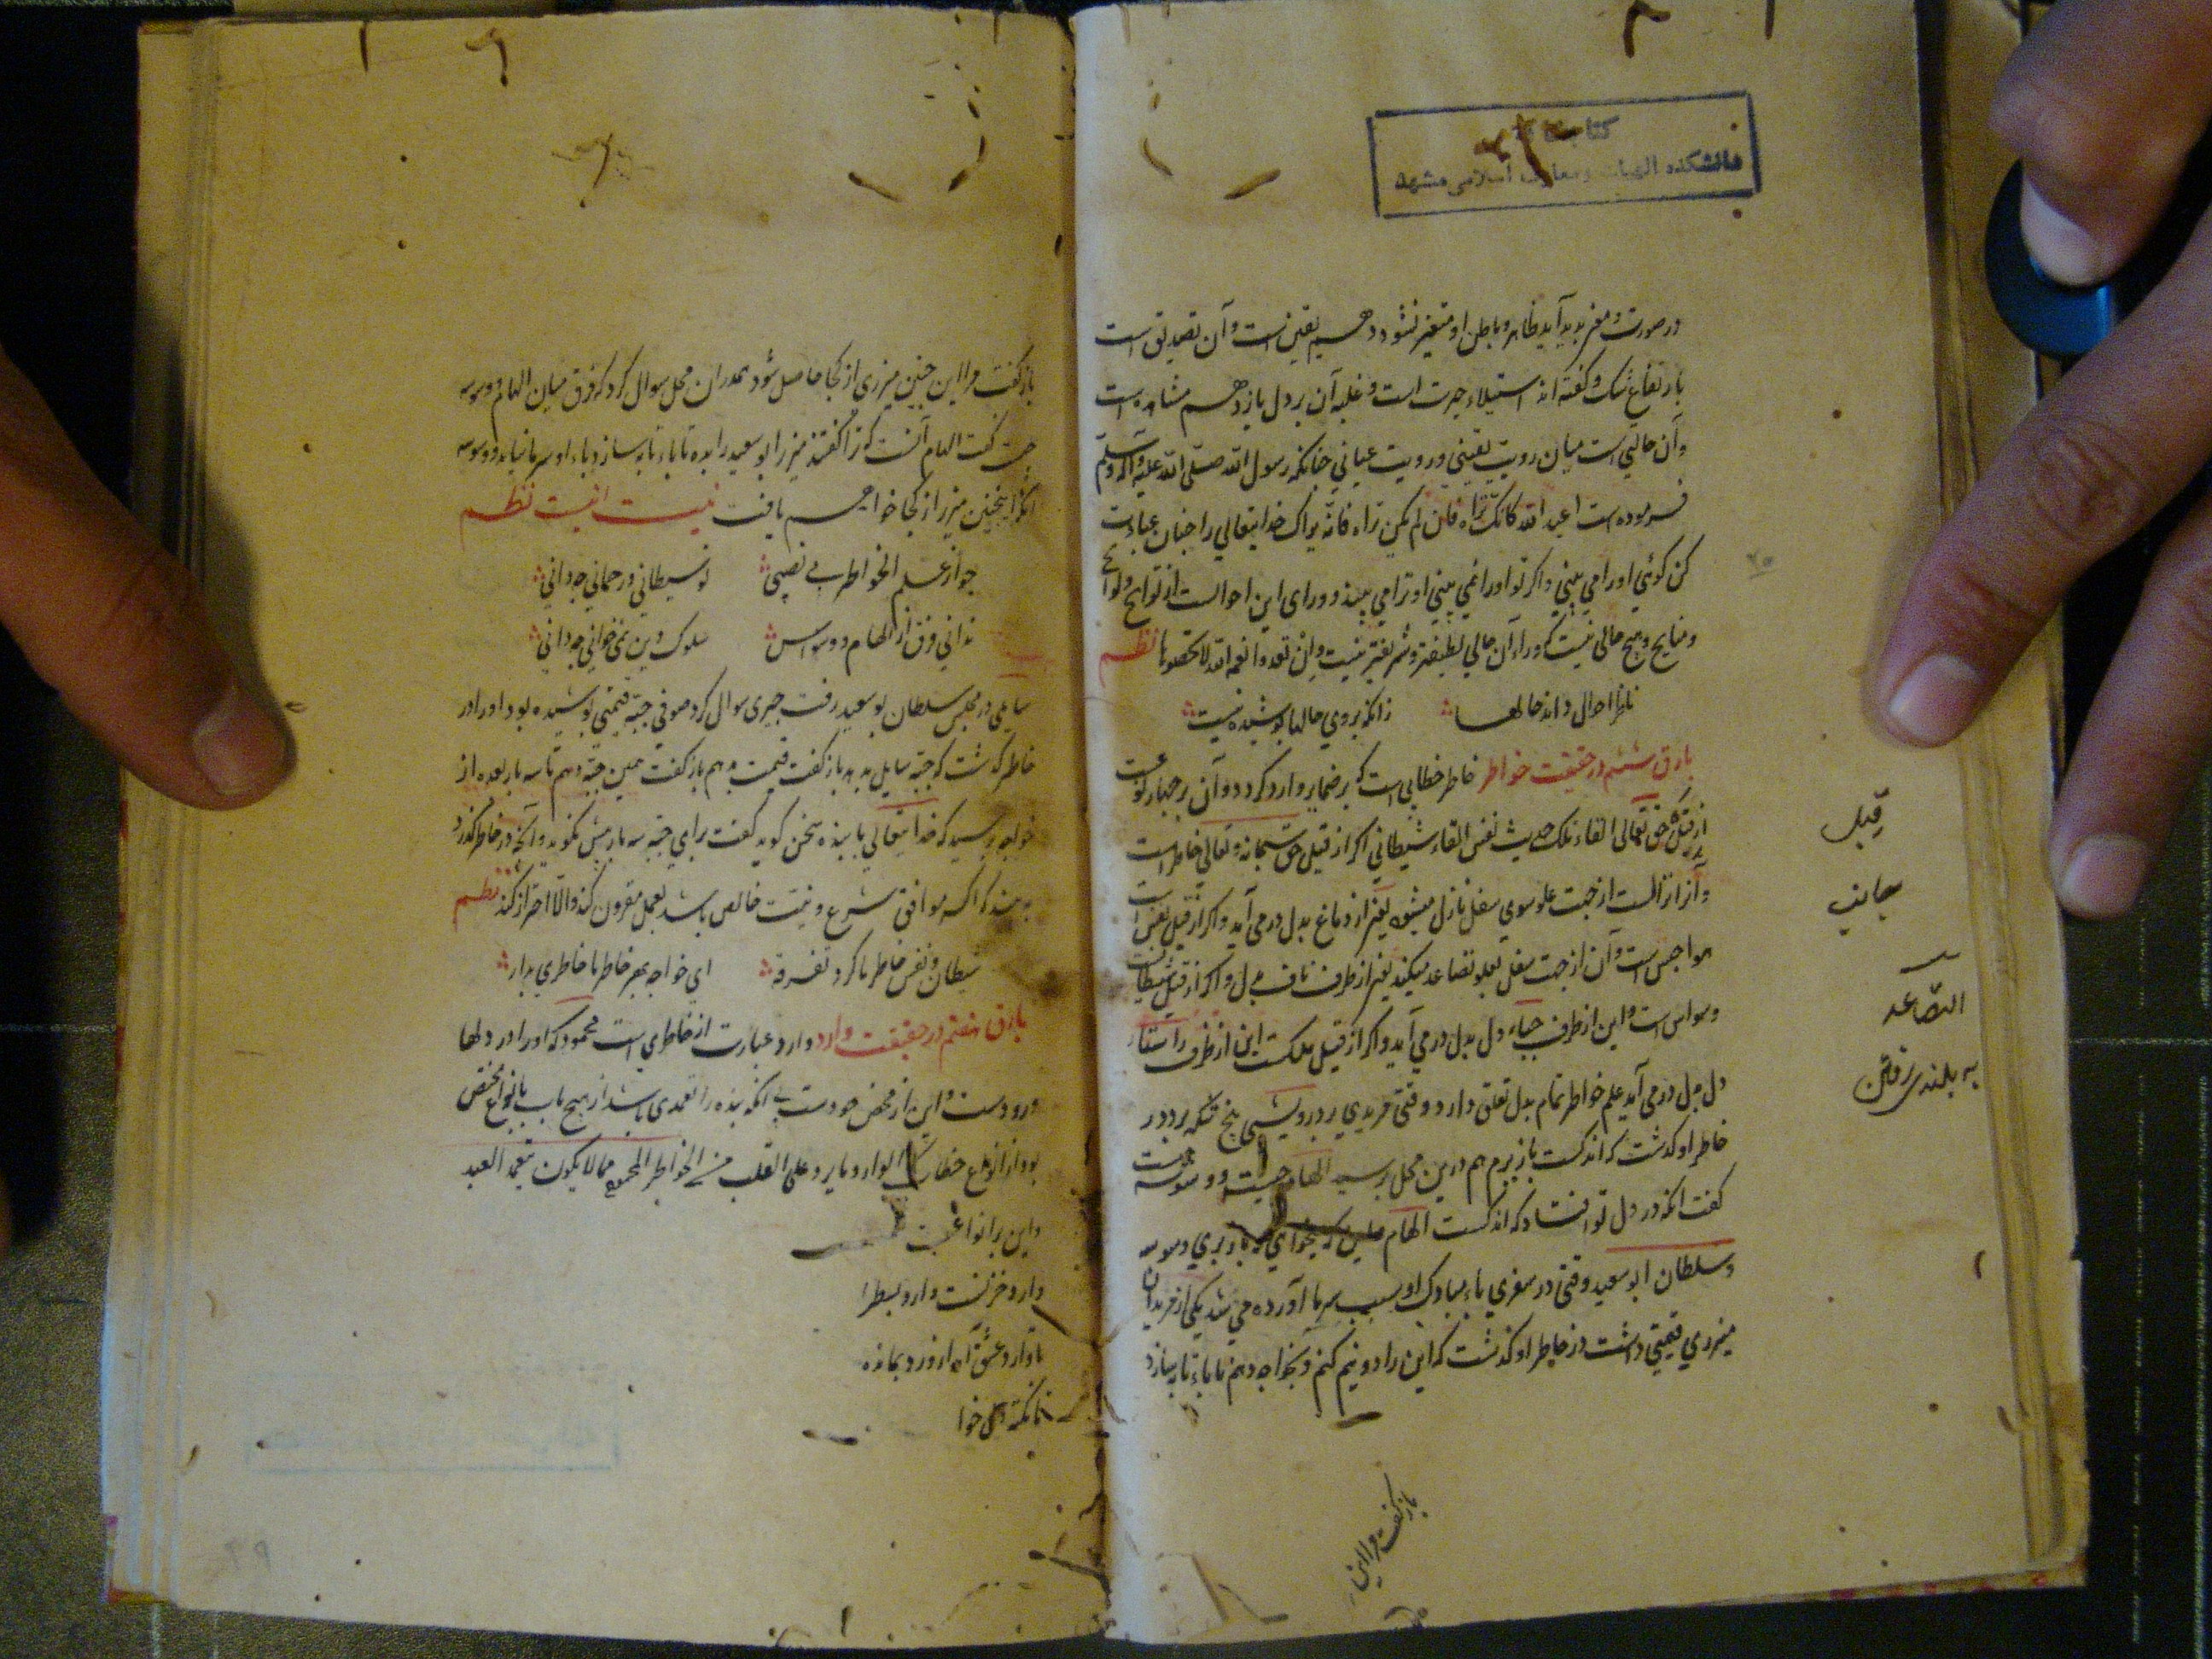 کتابخانه
دانشکده الهیات و معارف اسلامی مشهد
در صورت و معنی پدید آید ظاهر و باطن او متغیر نشود دهم یقین است و آن تصدیق است
بارتفاع شک و گفته اند استیلاء حیرت است و غلبه آن بر دل یازدهم مشاهده است
و آن حالتی است میان رویت یقینی و رویت عیانی چنانکه رسول الله صلی الله علیه و آله و سلم
فرموده است اعبد الله کانک تراه فان لم تکن تراه فانه یراک خدایتعالی را چنان عبادت
کن کوئی او را می بینی و اکر تو او را نمی بینی او ترا می بیند و ورای این احوالست از توابع و لوایح
و منایح و هیچ حالی نیست که وراء آن حالی لطیفتر و شریفتر نیست و ان تعدوا نعمه الله لا تحصوها نظم
احوال داند حالها
زانکه بروی حالها پوشیده نیست
بارق ششم در حقیقت خواطر خاطر خطابی است که بر ضمایر وارد کردد و آن بر چهار نوعست
از قبل حق تعالی القاء ملک حدیث نفس القاء شیطانی اکر از قبل حق سبحانه و تعالی خاطر است
و آنرا از جهت علو سوی سفل نازل میشود یعنی از دماغ بدل در می آید و اکر از قبل نفس است
هواجس است و آن از جهت سفل بعلو تصاعد میکند یعنی از طرف ناف بدل و اکر از قبل شیطانست
وسواس است و این از طرف چپ دل بدل در می آید و اکر از قبل ملکست این از طرف راست
دل بدل در می آید علم خواطر تمام بدل تعلق دارد وقتی مریدی بر درویشی پنج تنکه برد در
خاطر او کذشت که اندکست باز برم هم درین محل پرسید الهام چیست و وسوسه چیست
کفت انکه در دل تو افتاد که اندکست الهام باز بری وسوسه
و سلطان ابو سعید وقتی در سفری پاء مبارک او بسبب سرما آورده می شد یکی از مریدان
میزری قیمتی داشت در خاطر او کذشت که این را دو نیم کنم و بخواجه دهم تا پاء تابه سازد
باز کفت مرا این
قبل
جانب
التصاعد
به بلندی رفتن
باز کفت مرا این چنین میزری از کجا حاصل شود بعد در ان محل سوال کرد که فرق میان الهام و وسوسه
چیست کفت الهام آنست که ترا کفتند میزر ابو سعید را بده تا پاء تابه سازد و پاء او سرما نیابد و وسوسه
انکه اینچنین میزر از کجا خواهم یافت نظم
چو از علم الخواطر بی نصیبی
تو شیطانی و رحمانی چه دانی
ندانی فرق از الهام و وسواس
سلوک دین نمی خوانی چه دانی
سایلی در مجلس سلطان بو سعید رفت چیزی سوال کرد صوفی جبه قیمتی پوشیده بود او را در
خاطر کذشت که جبه سایل بدهد باز کفت قیمت بدهم باز کفت همین جبه دهم تا سه بار بعده از
خواجه پرسید که خدایتعالی با بنده سخن کوید کفت برای جبه سه بار بیش نکوید و آنچه در خاطر کذرد
به بیند که اکر موافق شرع و نیت خالص باشد بعمل مقرون کند و الا احتراز کند نظم
شیطان و نفس خاطر ما کرد تفرقه
ای خواجه بهر خاطر ما خاطری بدار
بارق هفتم در حقیقت وارد وارد عبارت از خاطری است محمود که او را در دلها
ورودست و این از محض جودست بی آنکه بنده را تعمدی باشد از هیچ باب بانواع مختص
بود از انواع خطاب الوارد ما یرد علی القلب من الخواطر المحموده مما لا یکون بتعمد العبد
و این بر انواعست
وارد حزنست وارد بسط را
تا وارد عشق